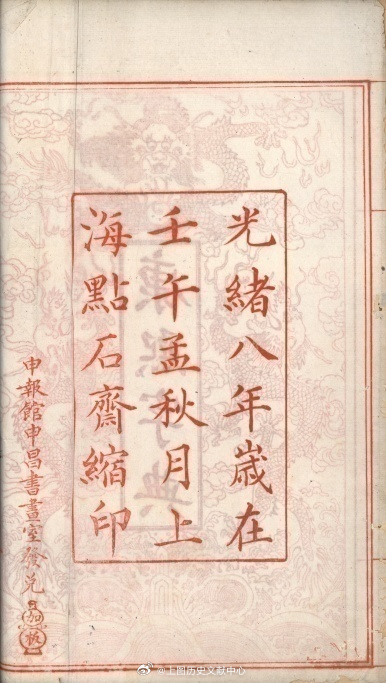 光緒八年歲在
壬午孟秋月上
海點石齋縮印
申報館申昌書畫室發兌
康熙字典
@上图历史文献中心